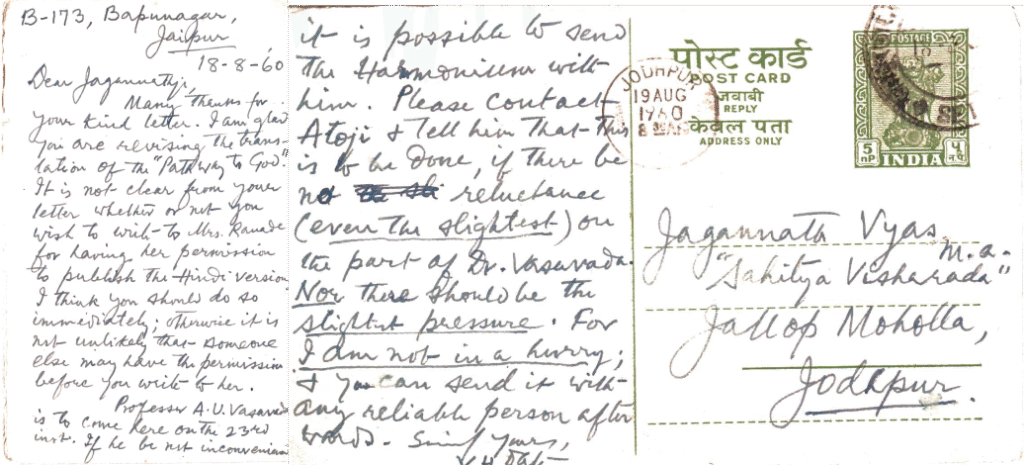 B-173, Bapunagar,
Jaipur
18-8-60
Dear Jagannathji,
Many thanks for
your kind letter. I am glad
you are revising the trans-
lation of the "Pathway to God."
It is not clear from your
letter whether or not you
wish to write to Mrs. Ranade
for having her permission
to publish the Hindi version
I think you should do so
immediately; otherwise it is
not unlikely that someone
else may have the permission
before you write to her.
Professor A. U. Vasavad
is to come here on the 23rd
inst. If he be not inconvenien
it is possible to send
the Harmonium with
him. Please contact
Atoji & tell him that this
is to be done, if there be
not reluctance
(even the slightest) on
the part of Dr. Vasavada.
Nor there should be the
slightest pressure. For
I am not in a hurry;
& you can send it with
any reliable person after
words. Yours,
पोस्ट कार्ड
POST CARD
जवाबी
REPLY
केवल पता
ADDRESS ONLY
JODHPUR
19 AUG
1960
8
POSTAGE
5
nP
INDIA
५
न.प.
Jagannath Vyas
M.A.
"Sahitya Visharada"
Jallop Moholla,
Jodhpur.